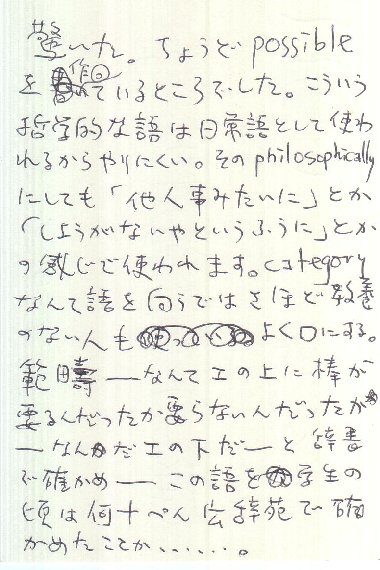 驚いた。ちょうどpossible
を作っているところでした。こういう
哲学的な語は日常語として使わ
れるからやりにくい。そのphilosophically
にしても「他人事みたいに」とか
「しょうがないやというふうに」とか
の感じで使われます。category
なんて語を向うではさほど教養
のない人もよく口にする。
範疇―なんてエの上に棒が
要るんだったか要らないんだったか
―なんだエの下だ―と辞書
で確かめ―この語を学生の
頃は何十ぺん広辞苑で確
かめたことか.......。